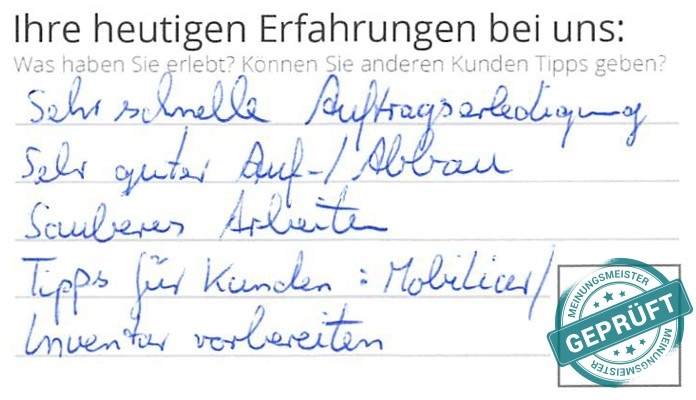 Ihre heutigen Erfahrungen bei uns:
Was haben Sie erlebt? Können Sie anderen Kunden Tipps geben?
Sehr schnelle Auftragserledigung
Sehr guter Auf-/Abbau
Sauberes Arbeiten
Tipps für Kunden : Mobiliar/
Inventar vorbereiten
MEINUNGSMEISTER
GEPRÜFT
MEINUNGSMEISTER